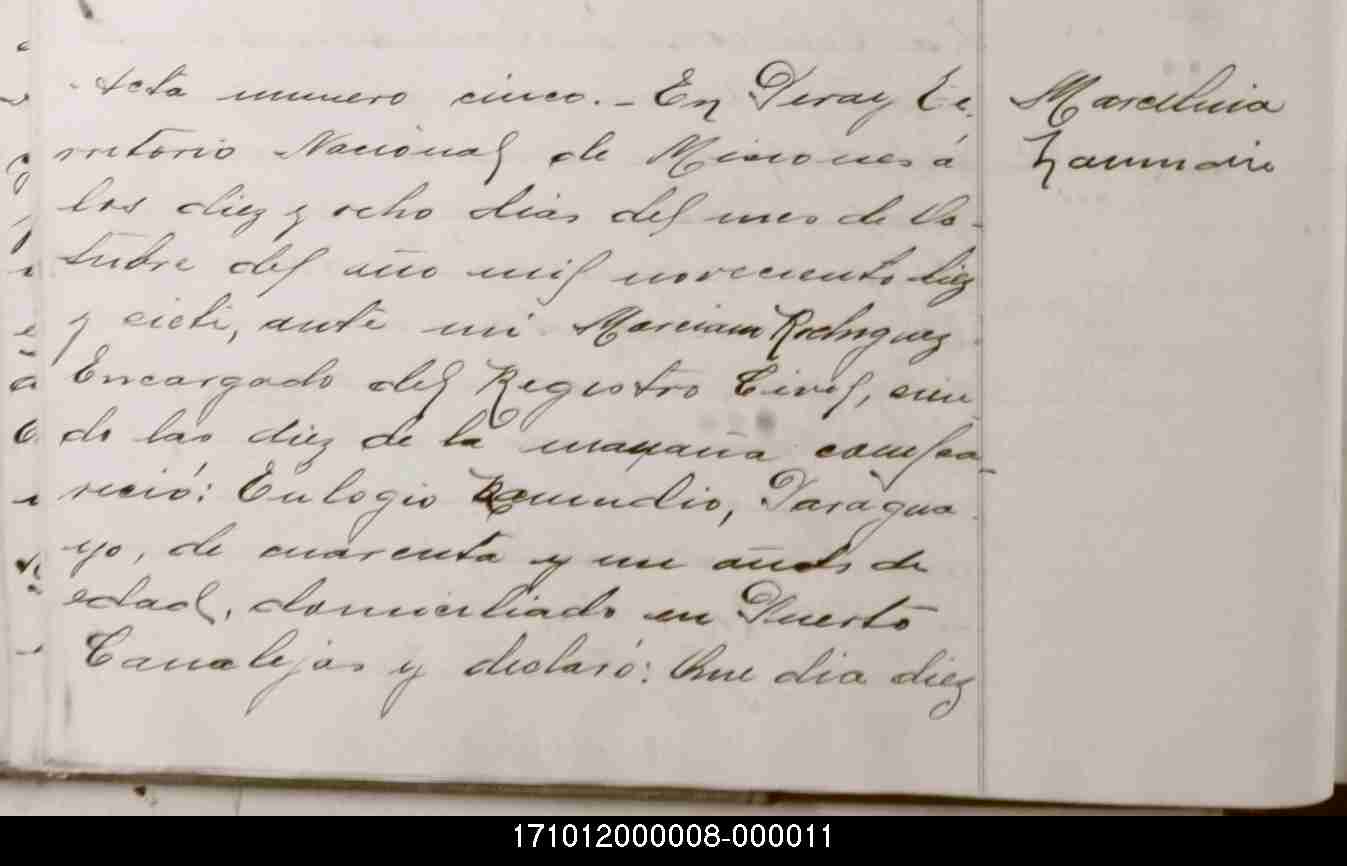 Acta numero cinco. - En Piray Te-
rritorio Nacional de Misiones á
los diez y ocho dias del mes de Oc-
tubre del año mil novecientos diez
y siete, ante mi Marciano Rodriguez
Encargado del Registro Civil, sien-
do las diez de la mañana compa-
reció: Eulogio Zamudio, Paragua-
yo, de cuarenta y un años de
edad, domiciliado en Puerto
Canalejas y declaró: Que dia diez
Marcelina
171012000008-000011